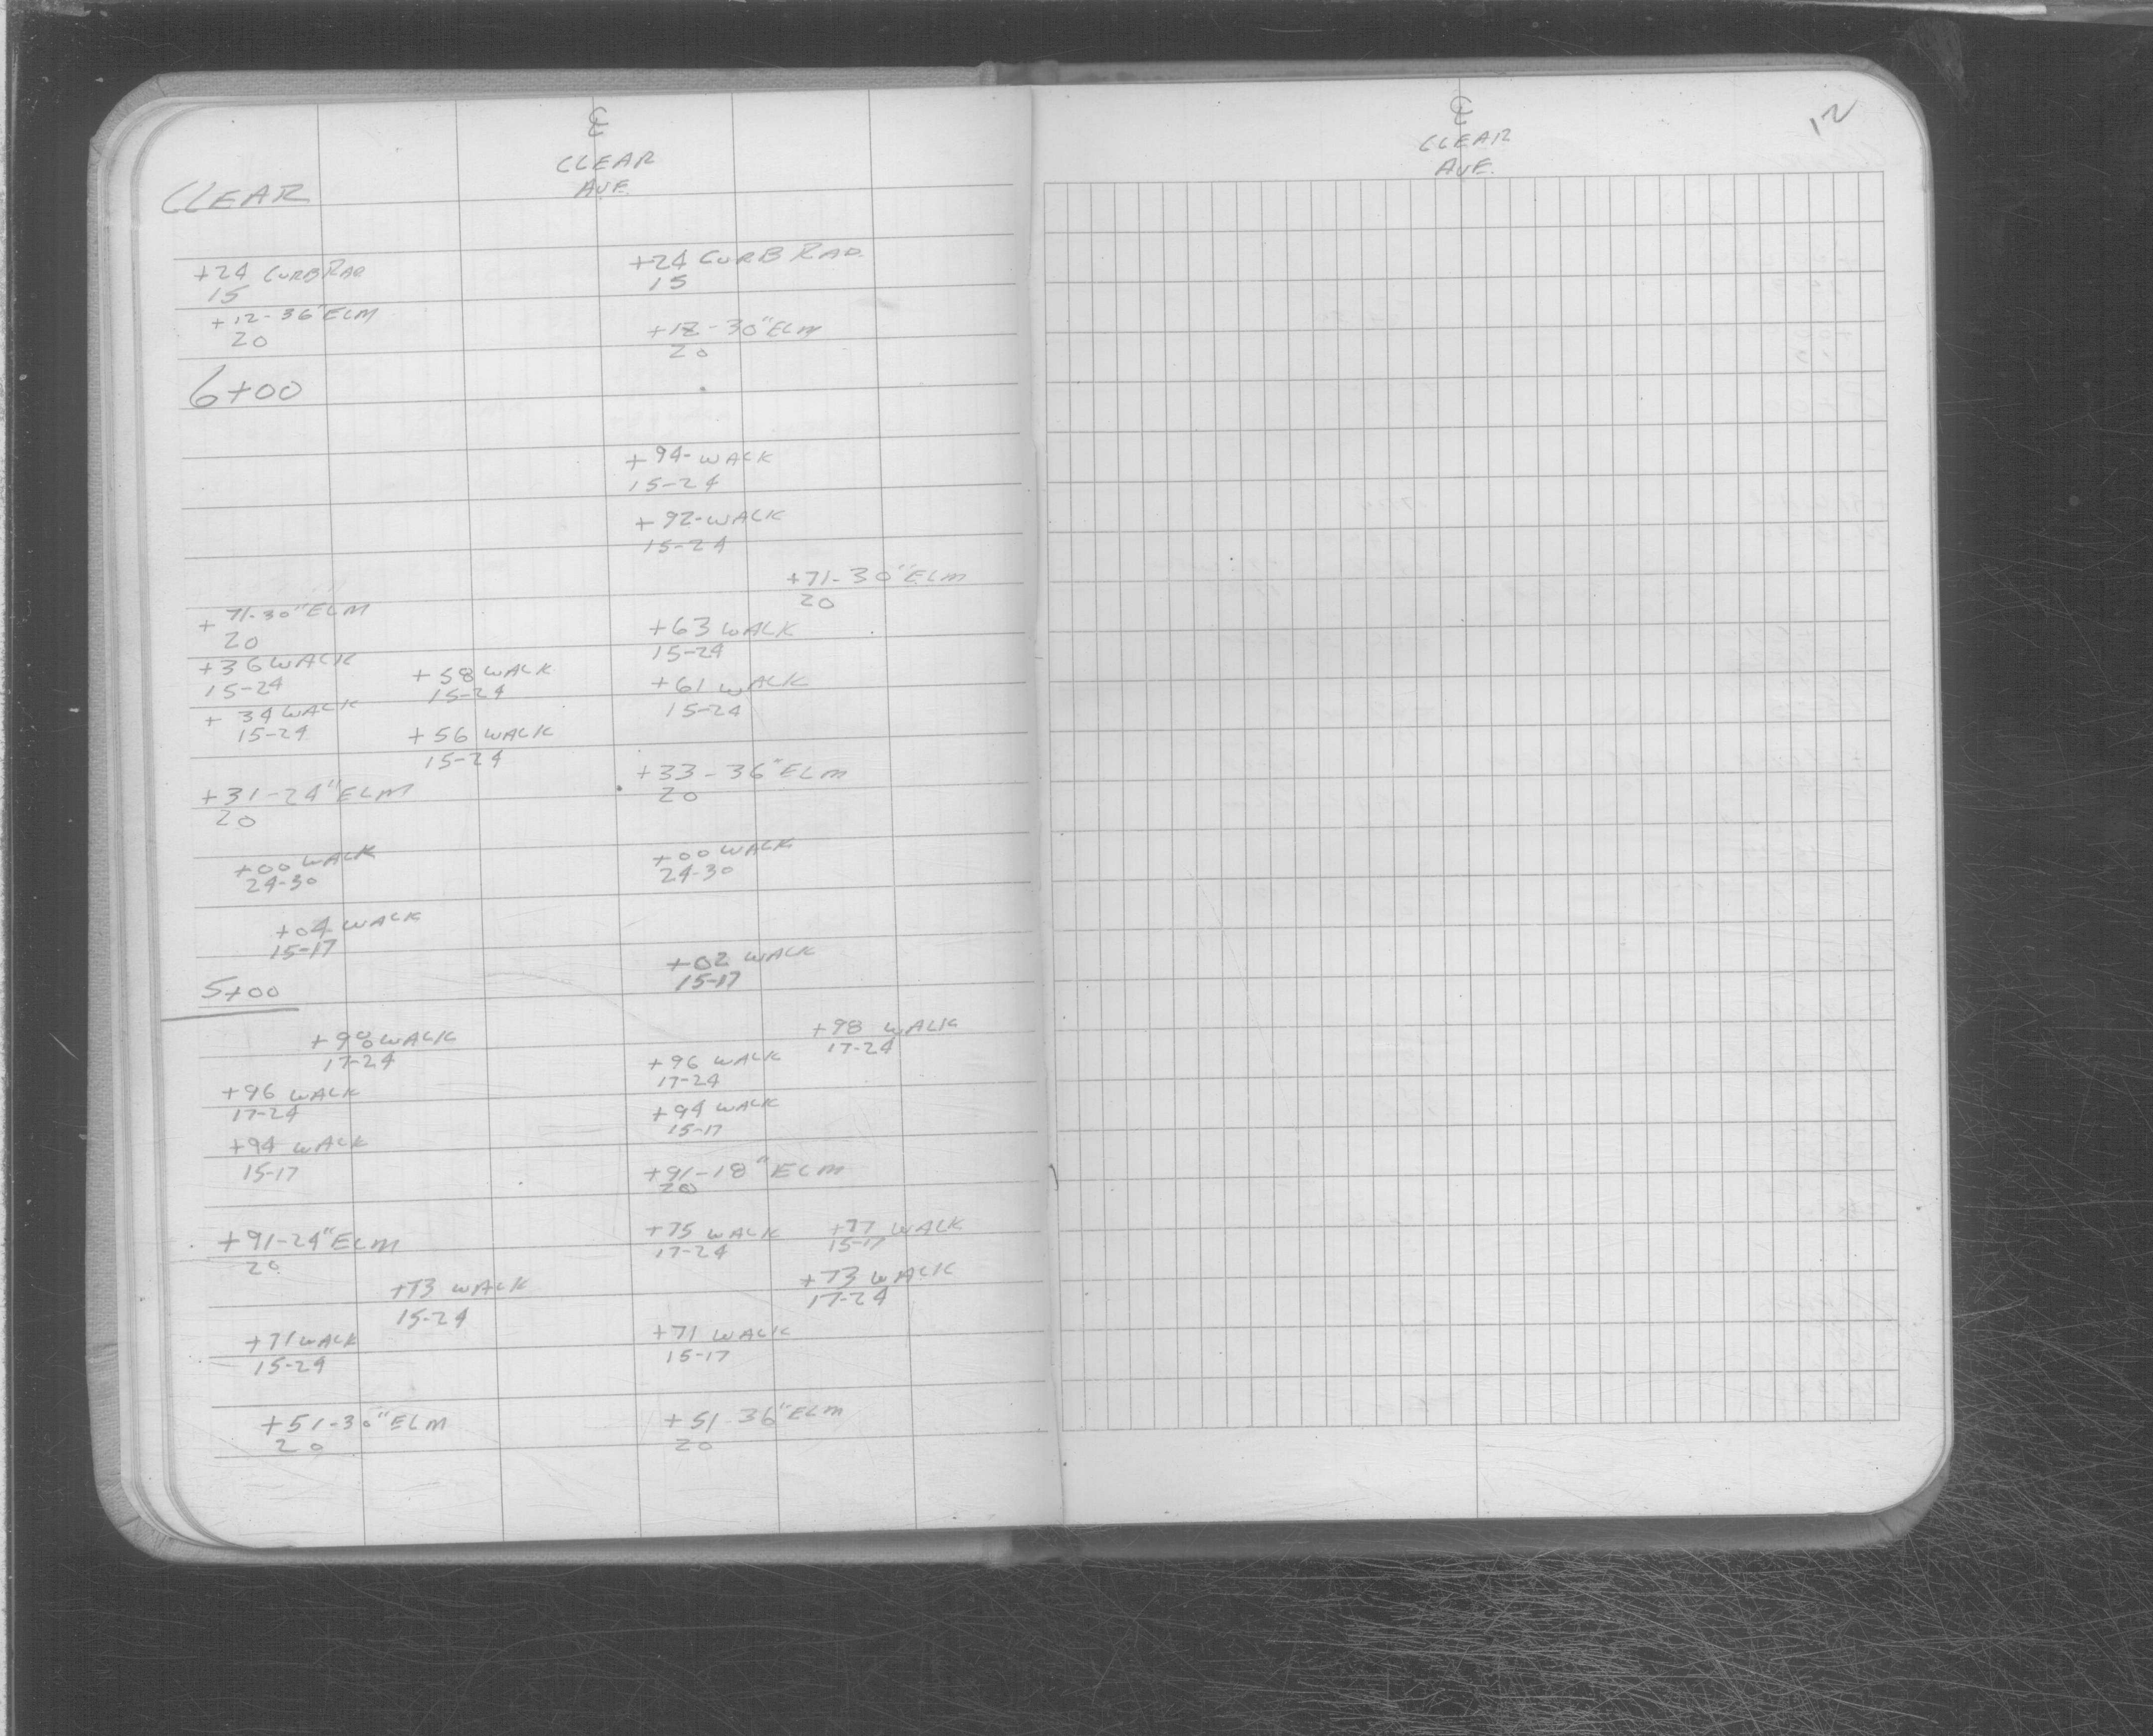 ℄
CLEAR
AVE.
CLEAR
+24 CURB RAD
15
+24 CURB RAD.
15
+12-36" ELM
20
+12-30" ELM
20
6+00
+94-WALK
15-24
+92-WALK
15-24
+71-30" ELM
20
+71-30" ELM
20
+63 WALK
15-24
+36 WALK
15-24
+58 WALK
15-24
+61 WALK
15-24
+34 WALK
15-24
+56 WALK
15-24
+33-36" ELM
20
+31-24" ELM
20
+00 WALK
24-30
+00 WALK
24-30
+04 WALK
15-17
+02 WALK
15-17
5+00
+98 WALK
17-24
+98 WALK
17-24
+96 WALK
17-24
+96 WALK
17-24
+94 WALK
15-17
+94 WALK
15-17
+91-18" ELM
20
+91-24" ELM
20
+75 WALK
17-24
+77 WALK
15-17
+73 WALK
15-24
+73 WALK
17-24
+71 WALK
15-24
+71 WALK
15-17
+51-30" ELM
20
+51-36" ELM
20
℄
CLEAR
AVE.
12